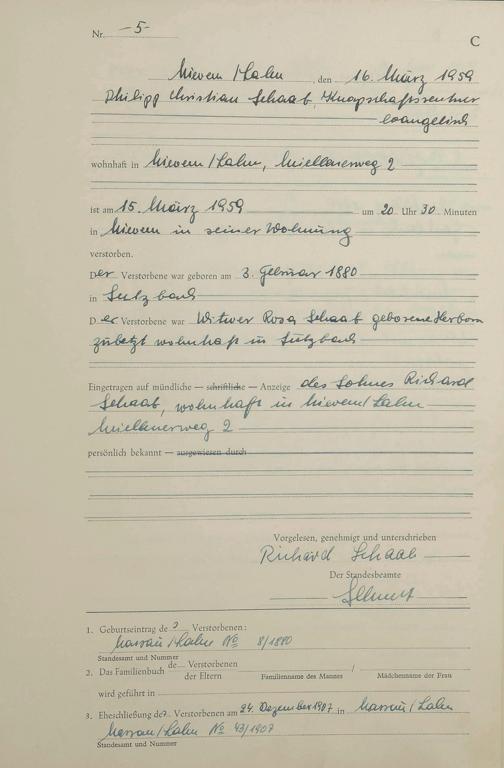 Nr. -5-
C
Nievern/Lahn, den 16. März 1959
Philipp Christian Schaab, Knapschaftsrentner
evangelisch
wohnhaft in Nievern/Lahn, Miellenerweg 2
ist am 15. März 1959 um 20 Uhr 30 Minuten
in Nievern in seiner Wohnung
verstorben.
Der Verstorbene war geboren am 3. Februar 1880
in Sulzbach
Der Verstorbene war Witwer Rosa Schaab geborene Herborn
zuletzt wohnhaft in Sulzbach
Eingetragen auf mündliche — schriftliche — Anzeige des Sohnes Richard
Schaab, wohnhaft in Nievern/Lahn
Miellenerweg 2
persönlich bekannt — ausgewiesen durch
Vorgelesen, genehmigt und unterschrieben
Richard Schaab
Der Standesbeamte
1. Geburtseintrag des Verstorbenen:
Nassau/Lahn No 8/1880
Standesamt und Nummer
2. Das Familienbuch de Verstorbenen /
der Eltern Familienname des Mannes Mädchenname der Frau
wird geführt in
3. Eheschließung des Verstorbenen am 24. Dezember 1907 in Nassau/Lahn
Nassau/Lahn No 43/1907
Standesamt und Nummer